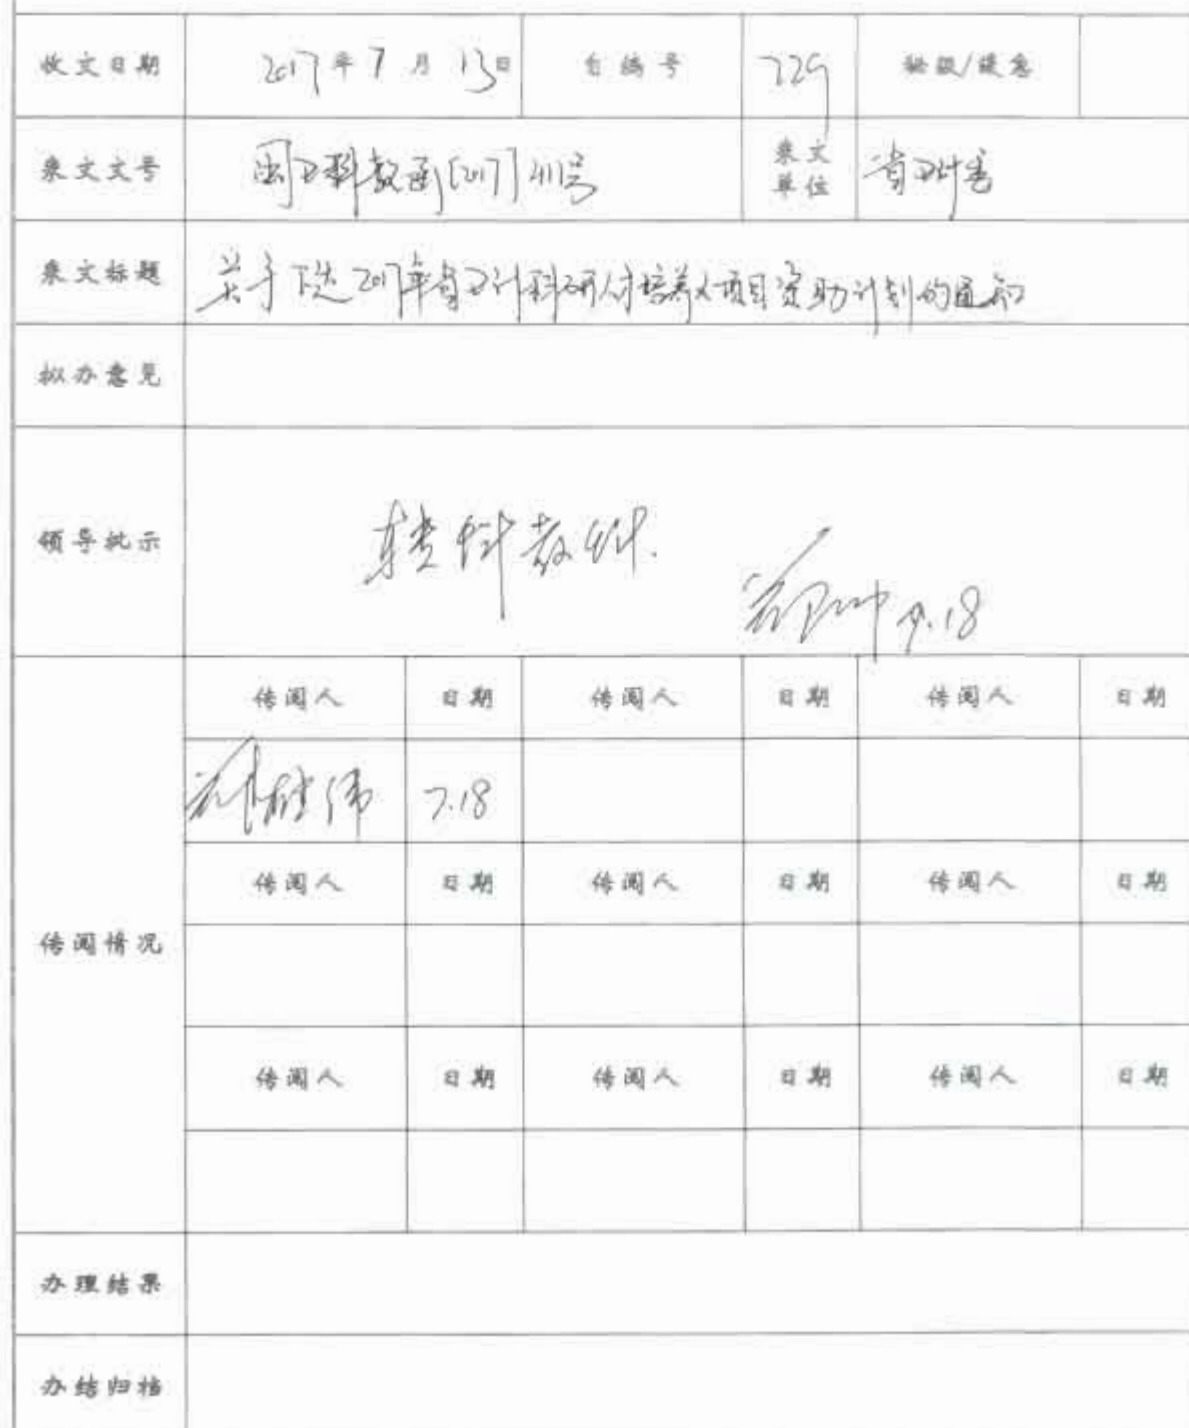 收文日期 2017年7月13日 自编号 729 秘级/缓急
来文文号 闽卫科教函[2017]411号 来文单位 省卫计委
来文标题 关于下达2017年省卫计科研人才培养项目资助计划的通知
拟办意见
领导批示 转科教科. 7.18
传阅人 日期 传阅人 日期 传阅人 日期
7.18
传阅情况
传阅人 日期 传阅人 日期 传阅人 日期
传阅人 日期 传阅人 日期 传阅人 日期
办理结果
办结归档